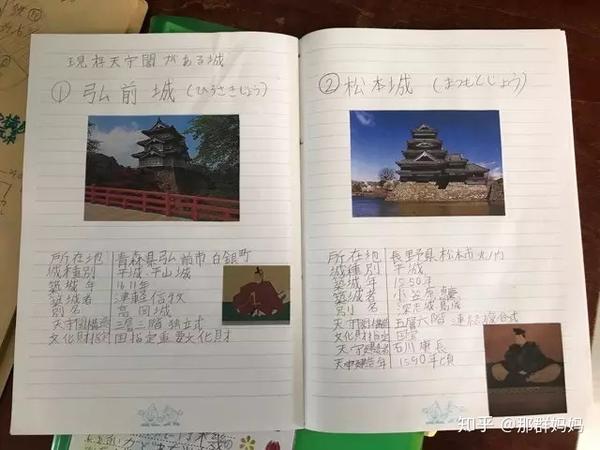 現存天守閣がある城
① 弘前城 (ひろさきじょう)
所在地 青森県弘前市白銀町
城種別 平城 平山城
築城年 1611年
築城者 津軽信牧
別名 高岡城
天守閣構造 三層三階 独立式
文化財指定 国指定重要文化財
② 松本城 (まつもとじょう)
所在地 長野県松本市丸ノ内
城種別 平城
築城年 1550年
築城者 小笠原
別名 深志城
天守閣構造 五層六階 連結複合式
文化財指定 国宝
天守建造者 石川康長
天守建造年 1590年頃
知乎 @那群妈妈